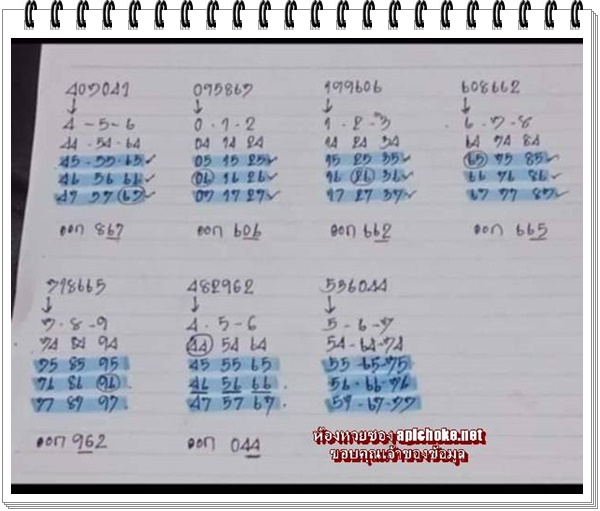 407041
4-5-6
44-54-64
45-55-65 ✓
46 56 66 ✓
47 57 67 ✓
ออก 867
095867
0.1.2
04 14 24
05 15 25 ✓
06 16 26 ✓
07 17 27 ✓
ออก 606
199606
1-2-3
14 24 34
15 25 35 ✓
16 26 36 ✓
17 27 37 ✓
ออก 662
608662
6.7.8
64 74 84
65 75 85 ✓
66 76 86 ✓
67 77 87 ✓
ออก 665
718665
7.8.9
74 84 94
75 85 95
76 86 96
77 87 97
ออก 962
482962
4.5-6
44 54 64
45 55 65
46 56 66
47 57 67
ออก 044
536044
5-6-7
54-64-74
55-65-75
56-66-76
57-67-77
ห้องหวยซอง apichoke.net
ขอบคุณเจ้าของข้อมูล